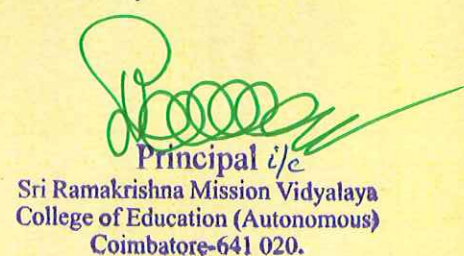 Principal i/c
Sri Ramakrishna Mission Vidyalaya
College of Education (Autonomous)
Coimbatore-641 020.